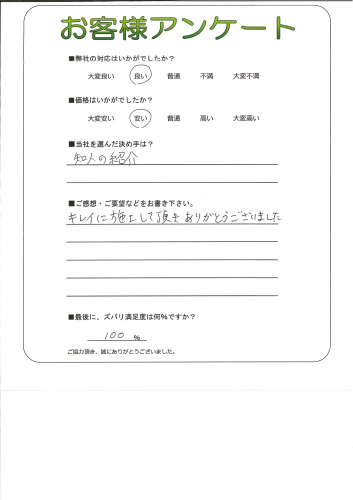 お客様アンケート
■弊社の対応はいかがでしたか?
大変良い 良い 普通 不満 大変不満
■価格はいかがでしたか?
大変安い 安い 普通 高い 大変高い
■当社を選んだ決め手は?
知人の紹介
■ご感想・ご要望などをお書き下さい。
キレイに施工して頂き ありがとうございました
■最後に、ズバリ満足度は何%ですか?
100 %
ご協力頂き、誠にありがとうございました。